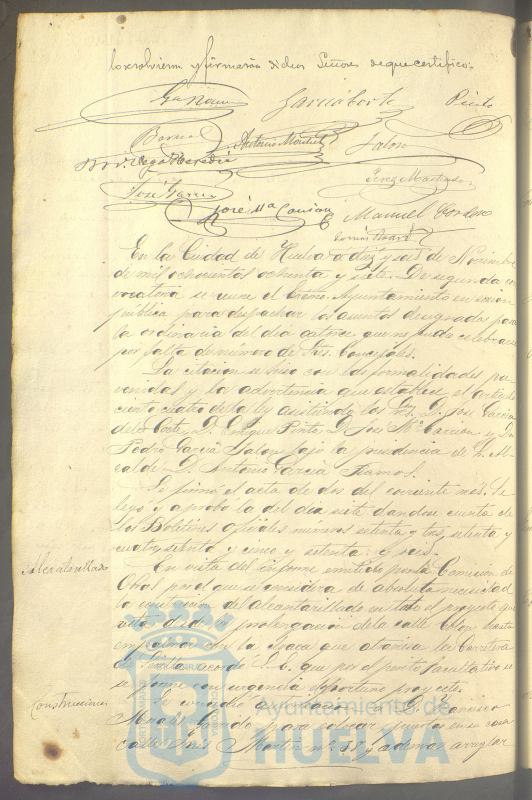 lo resolvieron y firmaron dichos Señores de que certifico.
García Corte Pinto
Bernal Antonio Montiel Jalon
Heredia Perez Machado
José García
José Mª Carrion Manuel Cordero
En la Ciudad de Huelva a diez y seis de Noviembre
de mil ochocientos ochenta y siete. De segunda con
vocatoria se reune el Excmo. Ayuntamiento en sesion
publica para despachar los asuntos designados para
la ordinaria del dia catorce que no pudo celebrarse
por falta de número de Sres. Concejales.
La citacion se hizo con las formalidades pre
venidas y la advertencia que establece el articulo
ciento cuatro de la ley asistiendo los Sres. D. José García
de la Corte, D. Enrique Pinto, D. José Mª Carrion y Don
Pedro García Jalon bajo la presidencia del Sr. Al
calde D. Antonio García Ramos.
Se firmó el acta de dos del corriente mes. Se
leyó y aprobó la del dia siete dandose cuenta de
los Boletines oficiales números setenta y tres, setenta y
cuatro, setenta y cinco y setenta y seis.
Alcantarillado
En vista del informe emitido por la Comision de
Obras por el que se considera de absoluta necesidad
la construccion del alcantarillado en todo el proyecto que
de prolongacion de la calle Colon hasta
empalmar con la que atraviesa la Carretera
de Sevilla acordó S. E. que por el perito facultativo se
se forme con urgencia el oportuno proyecto.
Construcciones
Se concedió a D. Francisco
para en su casa
calle nº 38 y ademas arreglar
Ayuntamiento de
HUELVA